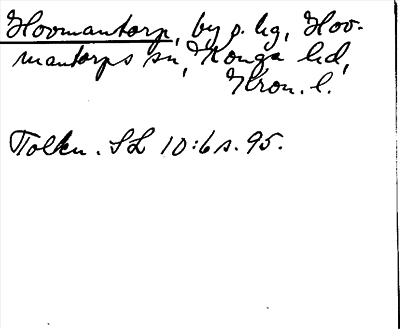 Hovmantorp, by o. hg, Hov-
mantorps sn, Konga hd,
Kron. l.
Tolkn. SL 10:6 s. 95.